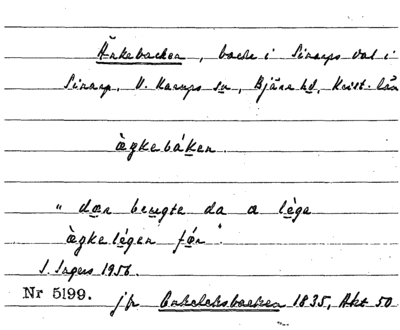 Änkebacken, backe i Sinarps dal i
Sinarp, V. Karups sn, Bjäre hd, Krist. län
àgkebáken.
"dær bengte da a lèga
àgkelégen fǿr".
S. Ingers 1956.
Nr 5199. jfr Enkelcksbacken 1835, Akt 50